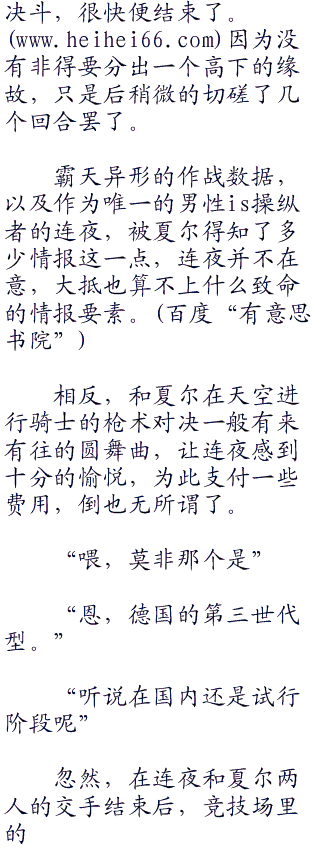 决斗，很快便结束了。
(www.heihei66.com)因为没
有非得要分出一个高下的缘
故，只是后稍微的切磋了几
个回合罢了。
霸天异形的作战数据，
以及作为唯一的男性is操纵
者的连夜，被夏尔得知了多
少情报这一点，连夜并不在
意，大抵也算不上什么致命
的情报要素。(百度“有意思
书院”)
相反，和夏尔在天空进
行骑士的枪术对决一般有来
有往的圆舞曲，让连夜感到
十分的愉悦，为此支付一些
费用，倒也无所谓了。
“喂，莫非那个是”
“恩，德国的第三世代
型。”
“听说在国内还是试行
阶段呢”
忽然，在连夜和夏尔两
人的交手结束后，竞技场里
的